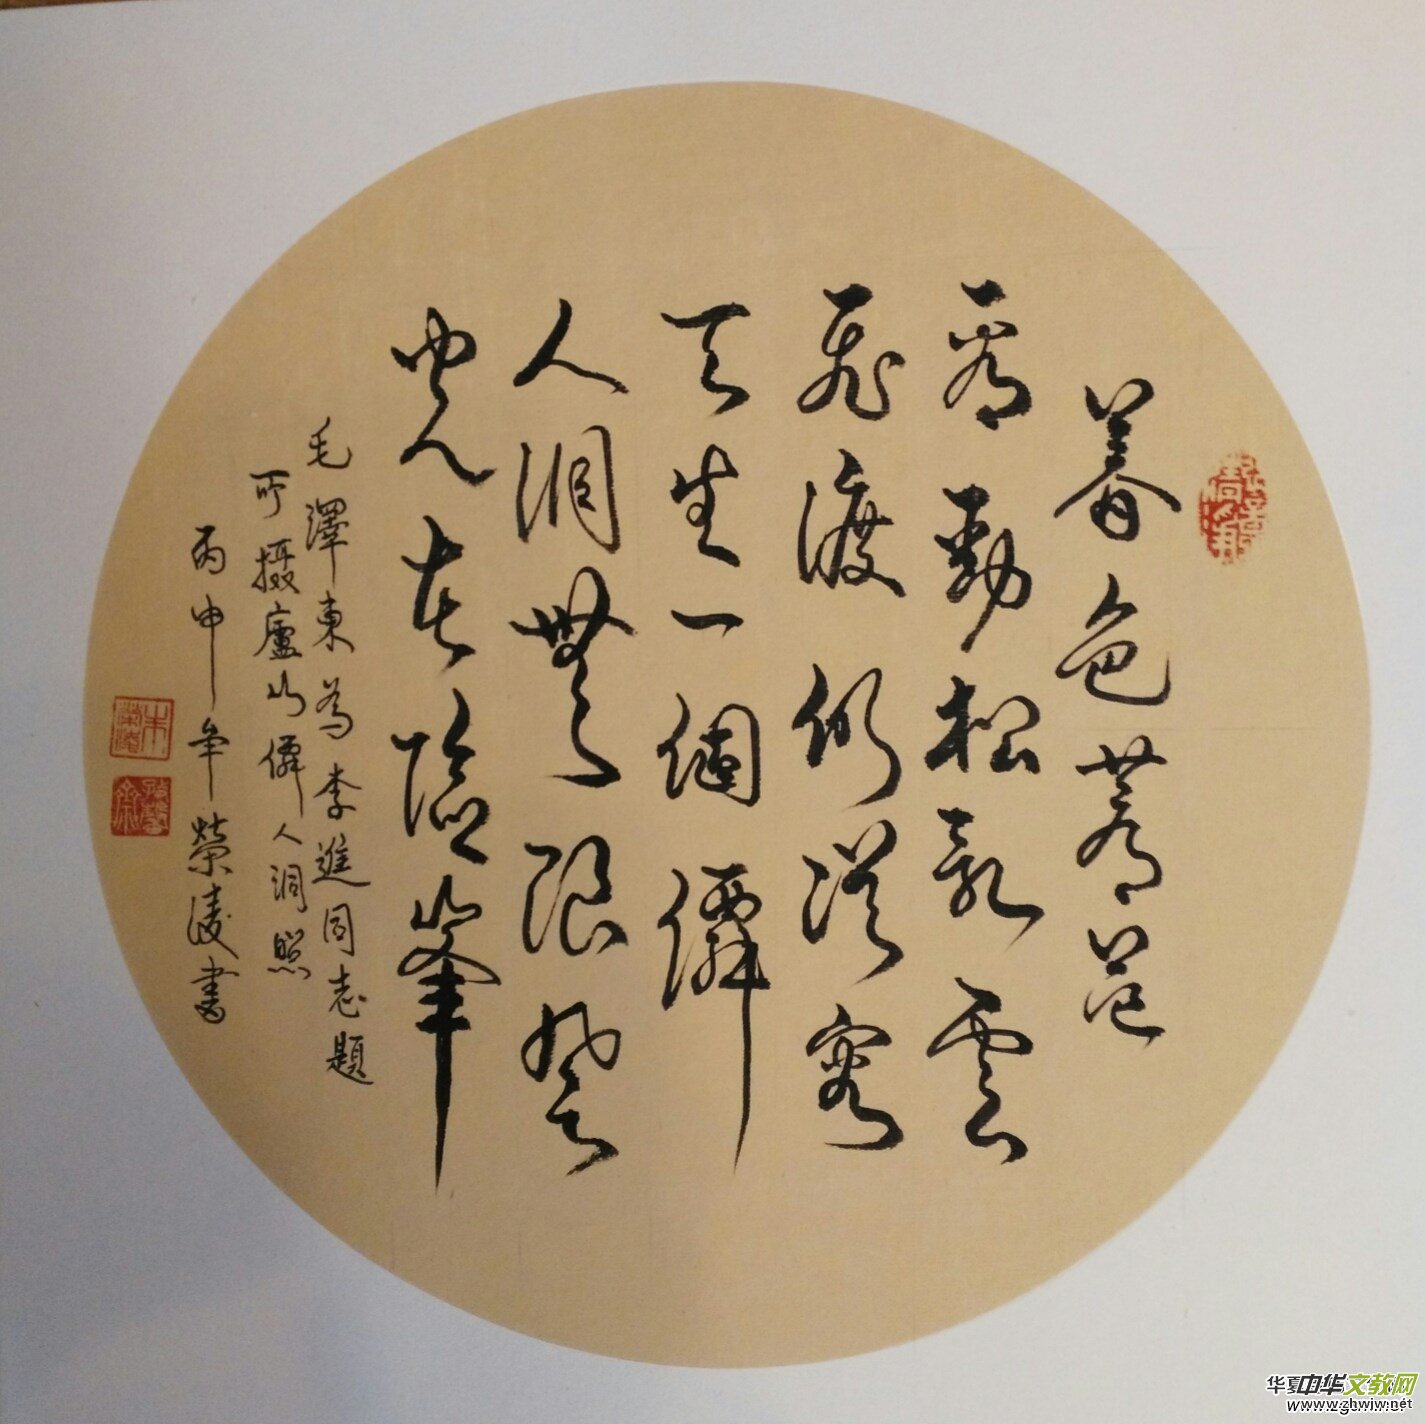 暮色蒼茫
看勁松亂雲
飛渡仍從容
天生一個僊
人洞無限風
光在險峯
毛澤東為李進同志題
所摄廬山僊人洞照
丙申年榮書
中华文教网